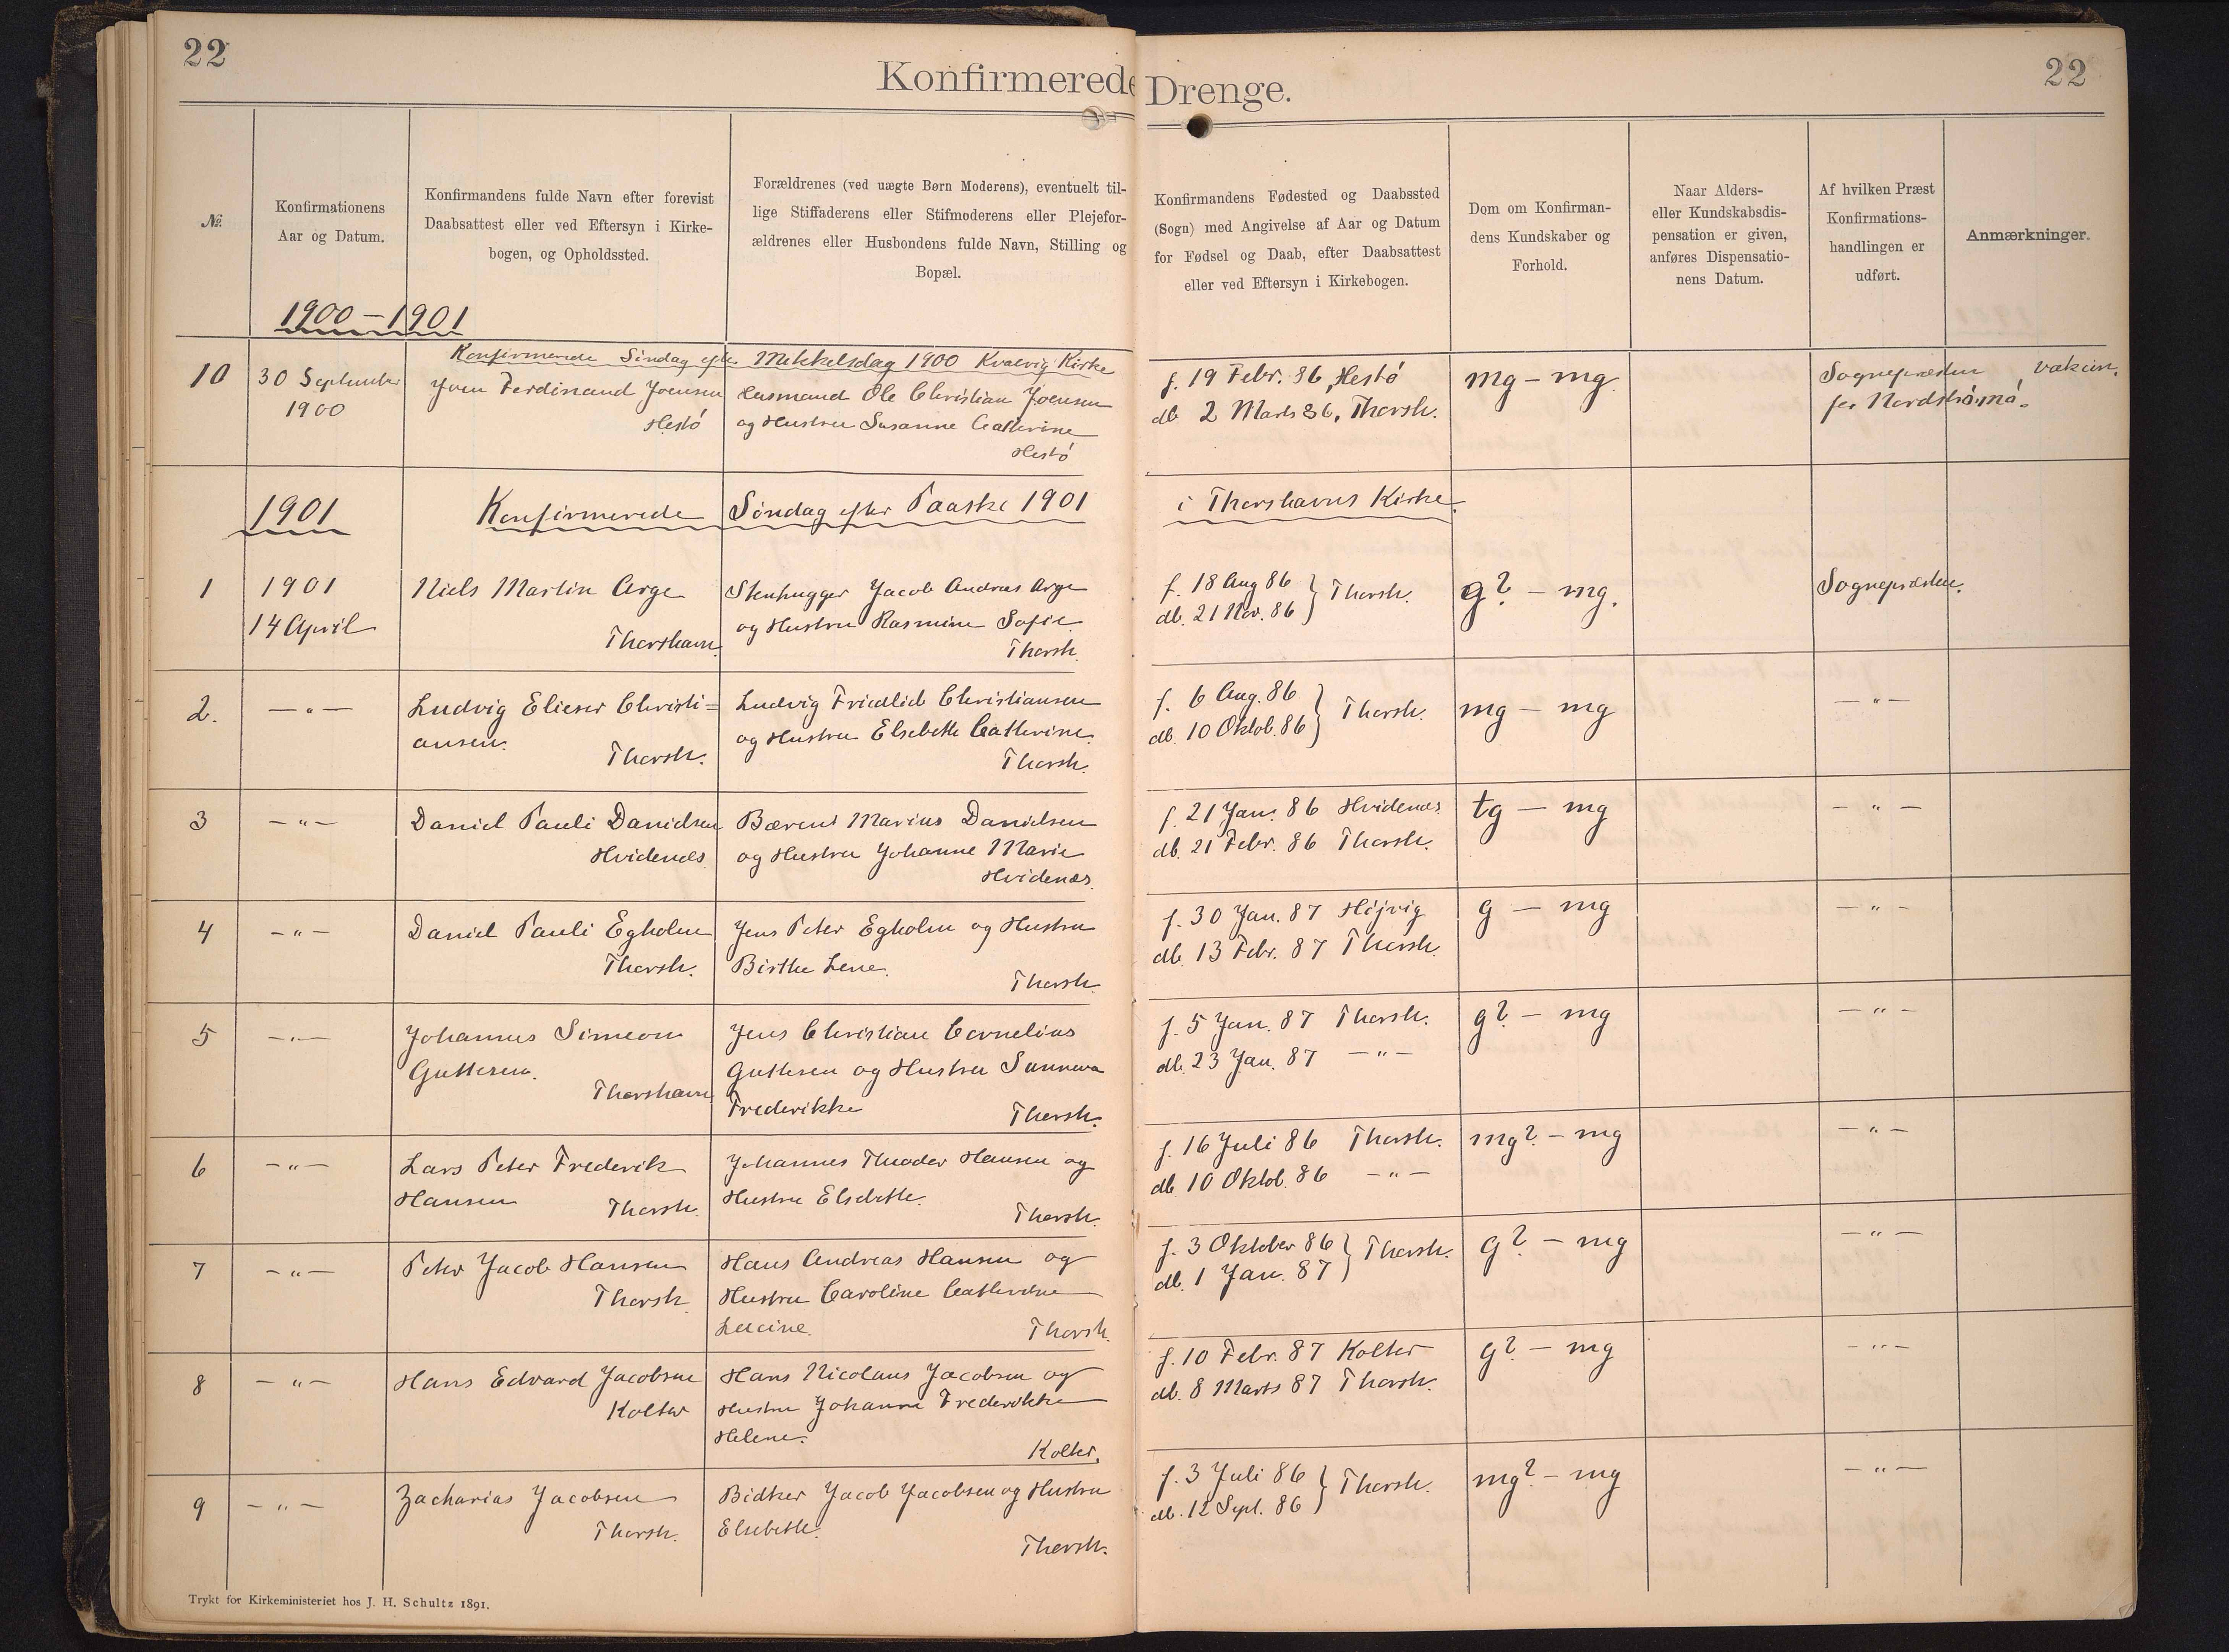 22
Konfirmerede Drenge.
22
№
Konfirmationens
Aar og Datum.
Konfirmandens fulde Navn efter forevist
Daabsattest eller ved Eftersyn i Kirke-
bogen, og Opholdssted.
Forældrenes (ved uægte Børn Moderens), eventuelt til-
lige Stiffaderens eller Stifmoderens eller Plejefor-
ældrenes eller Husbondens fulde Navn, Stilling og
Bopæl.
Konfirmandens Fødested og Daabssted
(Sogn) med Angivelse af Aar og Datum
for Fødsel og Daab, efter Daabsattest
eller ved Eftersyn i Kirkebogen.
Dom om Konfirman-
dens Kundskaber og
Forhold.
Naar Alders-
eller Kundskabsdis-
pensation er given,
anføres Dispensatio-
nens Datum.
Af hvilken Præst
Konfirmations-
handlingen er
udført.
Anmærkninger.
1900-1901
Konfirmerede Søndag efter Mikkelsdag 1900 Kvalvig Kirke
10
30 September
1900
Joen Ferdinand Joensen
Hestö
Husmand Ole Christian Joensen
og Hustru Susanne Cathrine
Hestö
f. 19 Febr. 86, Hestö
db 2 Marts 86, Thorsh.
mg - mg.
Sognepræsten
for Nordströmö.
vakcin.
1901
Konfirmerede Söndag efter Paaske 1901 i Thorshavns Kirke.
1
1901
14 April
Niels Martin Arge
Thorshavn.
Stenhugger Jacob Andreas Arge
og Hustru Rasmine Sofie
Thorsh.
f. 18 Aug 86
db. 21 Nov. 86 } Thorsh.
g? - mg.
Sognepræsten.
2.
- " -
Ludvig Elieser Christi=
ansen.
Thorsh.
Ludvig Fridlieb Christiansen
og Hustru Elsebeth Cathrine.
Thorsh.
f. 6 Aug. 86
db. 10 Oktob. 86 } Thorsh.
mg - mg
- " -
3
- " -
Daniel Pauli Danielsen
Hvidenæs
Bærent Marius Danielsen
og Hustru Johanne Marie
Hvidenæs.
f. 21 Jan. 86 Hvidenæs.
db. 21 Febr. 86 Thorsh.
tg - mg
- " -
4
- " -
Daniel Pauli Egholm
Thorsh.
Jens Peter Egholm og Hustru
Birthe Lene.
Thorsh
f. 30 Jan. 87 Höjvig
db. 13 Febr. 87 Thorsh.
g - mg
- " -
5
- " -
Johannes Simeon
Guttesen.
Thorshavn
Jens Christian Cornelius
Guttesen og Hustru Sunneva
Frederikke
Thorsh.
f. 5 Jan. 87 Thorsh.
db. 23 Jan. 87 - " -
g? - mg
- " -
6
- " -
Lars Peter Frederik
Hansen
Thorsh.
Johannes Theodor Hansen og
Hustru Elsebeth.
Thorsh.
f. 16 Juli 86 Thorsh.
db. 10 Oktob. 86 - " -
mg? - mg
- " -
7
- " -
Peter Jacob Hansen
Thorsh
Hans Andreas Hansen og
Hustru Caroline Cathrine
Lucine.
Thorsh.
f. 3 Oktober 86
db. 1 Jan. 87 } Thorsh.
g? - mg
- " -
8
- " -
Hans Edvard Jacobsen
Kolter
Hans Nicolaus Jacobsen og
Hustru Johanne Frederikke
Helene.
Kolter.
f. 10 Febr. 87 Kolter
db. 8 Marts 87 Thorsh.
g? - mg
- " -
9
- " -
Zacharias Jacobsen
Thorsh.
Bödker Jacob Jacobsen og Hustru
Elsebeth.
Thorsh.
f. 3 Juli 86
db. 12 Sept. 86 } Thorsh.
mg? - mg
- " -
Trykt for Kirkeministeriet hos J. H. Schultz 1891.